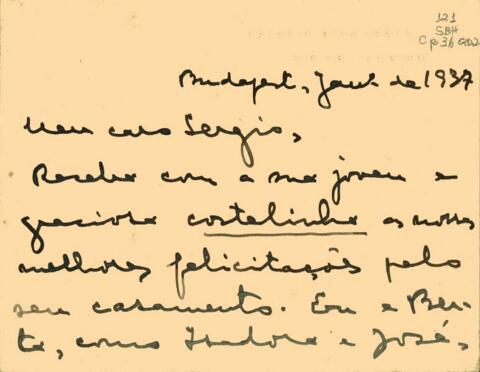 121
SBH
Cp 36
Budapest, Jan. de 1937
Meu caro Sergio,
Receba com a sua jovem e
graciosa costelinha as nossas
melhores felicitações pelo
seu casamento. Eu e Ber-
ta, como Isadora e José,